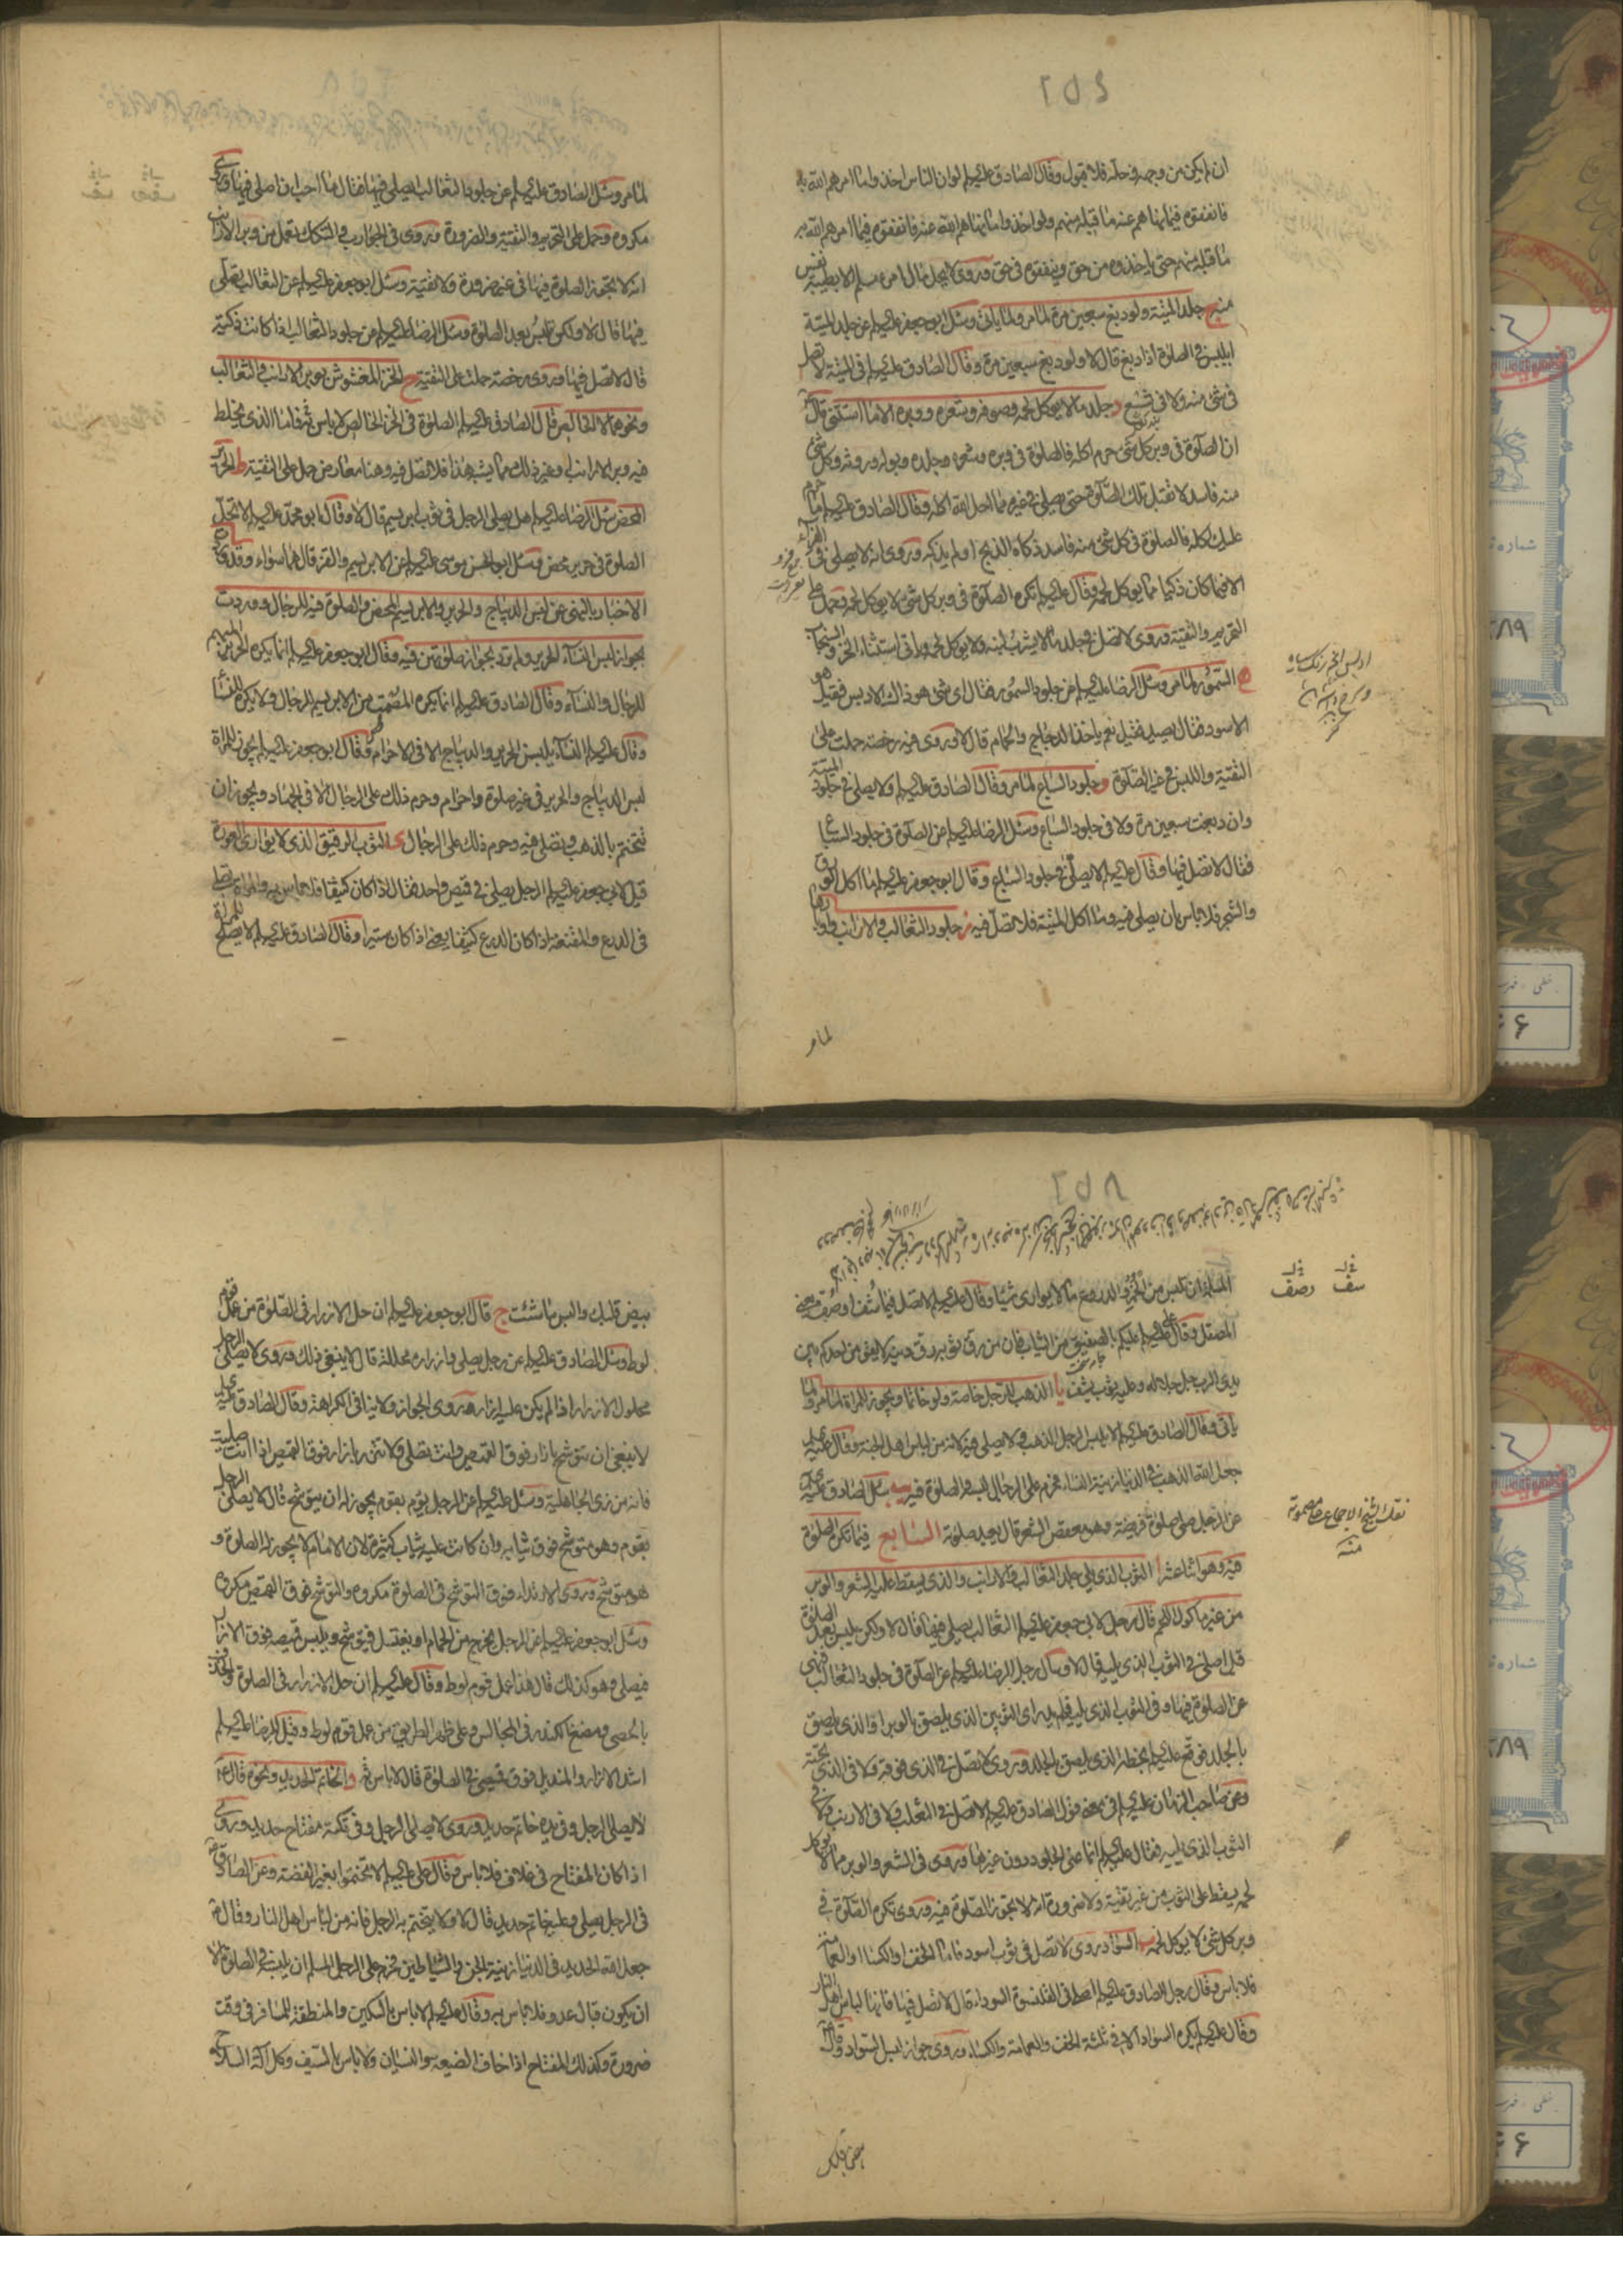 ٢٥٤
ان لم يكن من وجهه في حله فلا قبول وقال الصادق عليه السلم لو ان الناس اخذوا ما امرهم الله به
فانفقوه فيما نهاهم عنه ما قبله منهم ولو اخذوا ما نهاهم الله عنه فانفقوه فيما امرهم الله به
ما قبله منهم حتى ياخذوه من حق وينفقوه في حق وروى لا يحل مال امرء مسلم الا بطيبة نفس
منه ج جلد الميتة ولو دبغ سبعين مرة لما مر ولما ياتي وسئل ابو جعفر عليه السلم عن جلد الميتة
ايلبس في الصلوة اذا دبغ قال لا ولو دبغ سبعين مرة وقال الصادق عليه السلم في الميتة لا تصل
في شئ منه ولا في شسع د جلد ما لا يؤكل لحمه وصوفه وشعره ووبره الا ما استثنى قال
ان الصلوة في وبر كل شئ حرم اكله فالصلوة في وبره وشعره وجلده وبوله وروثه وكل شئ
منه فاسد لا تقبل تلك الصلوة حتى يصلى في غيره مما احل الله اكله وقال الصادق عليه السلم ما حرم
عليك اكله فالصلوة في كل شئ منه فاسد ذكاه الذبح او لم يذكه وروى انه لا يصلى في الفراء
الا فيما كان ذكيا مما يؤكل لحمه وقال عليه السلم تكره الصلوة في وبر كل شئ لا يؤكل لحمه وحمل على
التحريم والتقية وروى لا تصل في جلد ما لا يشرب لبنه ولا يؤكل لحمه وياتي استثناء الخز والسنجاب
ه السمور لما مر وسئل الرضا عليه السلم عن جلود السمور فقال اى شئ هو ذاك الادبس فقيل هو
الاسود فقال يصيد فقيل نعم ياخذ الدجاج والحمام قال لا وروى فيه رخصة حملت على
التقية واللبس في غير الصلوة و جلود السباع لما مر وقال الصادق عليه السلم ولا يصلى في جلود الميتة
وان دبغت سبعين مرة ولا في جلود السباع وسئل الرضا عليه السلم عن الصلوة في جلود السباع
فقال لا تصل فيها وقال عليه السلم لا يصلى في جلود السباع وقال ابو جعفر عليه السلم ما اكل الورق
والشجر فلا باس بان يصلى فيه وما اكل الميتة فلا تصل فيه ز جلود الثعالب والارانب واوبارها
لما مر
لما مر وسئل الصادق عليه السلم عن جلود الثعالب ايصلى فيها فقال ما احب ان اصلى فيها وروى
مكروه وحمل على التحريم والتقية والضرورة وروى في الجوارب والتكك تعمل من وبر الارانب
انه لا تجوز الصلوة فيها في غير ضرورة ولا تقية وسئل ابو جعفر عليه السلم عن الثعالب يصلى
فيها قال لا ولكن تلبس بعد الصلوة وسئل الرضا عليه السلم عن جلود الثعالب اذا كانت ذكية
قال لا تصل فيها وروى رخصة حملت على التقية ح الخز المغشوش بوبر الارانب والثعالب
ونحوهما لا الخالص قال الصادق عليه السلم الصلوة في الخز الخالص لا باس به فاما الذى يخلط
فيه وبر الارانب او غير ذلك مما يشبه هذا فلا تصل فيه وهنا معارض حمل على التقية ط الحرير
المحض سئل الرضا عليه السلم هل يصلى الرجل في ثوب ابريسم قال لا وقال ابو محمد عليه السلم لا تحل
الصلوة في حرير محض وسئل ابو الحسن موسى عليه السلم عن الابريسم والقز قال هما سواء وقد روى
الاخبار بالنهى عن لبس الديباج والحرير والابريسم المحض والصلوة فيه للرجال ووردت
بجواز لبس النساء الحرير ولم ترد بجواز صلوتهن فيه وقال ابو جعفر عليه السلم انما يكره الحرير المبهم
للرجال والنساء وقال الصادق عليه السلم انما يكره المصمت من الابريسم للرجال ولا يكره للنساء
وقال عليه السلم النساء يلبس الحرير والديباج الا في الاحرام وقال ابو جعفر عليه السلم يجوز للمراة
لبس الديباج والحرير في غير صلوة واحرام وحرم ذلك على الرجال الا في الجهاد ويجوز ان
تتختم بالذهب وتصلى فيه وحرم ذلك على الرجال ى الثوب الرقيق الذى لا يوارى العورة
قيل لابي جعفر عليه السلم الرجل يصلى في قميص واحد فقال اذا كان كثيفا فلا باس به والمراة تصلى
في الدرع والمقنعة اذا كان الدرع كثيفا يعني اذا كان ستيرا وقال الصادق عليه السلم لا يصلح للمراة
٢٥٧
شف وصف
المسلمة ان تلبس من الخمر والدروع ما لا يوارى شيئا وقال عليه السلم لا تصل فيما شف او صف يعني
المصقل وقال على عليه السلم عليكم بالصفيق من الثياب فان من رق ثوبه رق دينه لا يقومن احدكم بين
يدى الرب جل جلاله وعليه ثوب يشف يا الذهب للرجل خاصة ولو خاتما ويجوز للمراة لما مر ولما
ياتي وقال الصادق عليه السلم لا يلبس الرجل الذهب ولا يصلى فيه لانه من لباس اهل الجنة وقال عليه السلم
جعل الله الذهب في الدنيا زينة النساء فحرم على الرجال لبسه والصلوة فيه يب سئل الصادق عليه السلم
عن الرجل صلى صلوة فريضة وهو معقص الشعر قال يعيد صلوته السابع فيما تكره الصلوة
فيه وهو اثنا عشر ا الثوب الذى يلى جلد الثعالب والارانب والذى يسقط عليه الشعر والوبر
من غير ماكول اللحم قال رجل لابي جعفر عليه السلم الثعالب يصلى فيها قال لا ولكن يلبس بعد الصلوة
قلت اصلى في الثوب الذى يليه قال لا وسال رجل الرضا عليه السلم عن الصلوة في جلود الثعالب فنهى
عن الصلوة فيها وفي الثوب الذى يليه فلم يدر اى الثوبين الذى يلصق بالوبر او الذى يلصق
بالجلد فوقع عليه السلم بخطه الذى يلصق بالجلد وروى لا تصل في الذى فوقه ولا في الذى تحته
وعن صاحب الزمان عليه السلم في معنى قول الصادق عليه السلم لا تصل في الثعلب ولا في الارنب ولا في
الثوب الذى يليه فقال عليه السلم انما عنى الجلود دون غيرها وروى في الشعر والوبر مما لا يؤكل
لحمه يسقط على الثوب من غير تقية ولا ضرورة انه لا تجوز الصلوة فيه وروى تكره الصلوة في
وبر كل شئ لا يؤكل لحمه ب السواد روى لا تصل في ثوب اسود فاما الخف او الكساء او العمامة
فلا باس وقال رجل للصادق عليه السلم اصلى في القلنسوة السوداء قال لا تصل فيها فانها لباس اهل النار
وقال عليه السلم يكره السواد الا في ثلثة الخف والعمامة والكساء وروى جواز لبس السواد وقال
نقل الشيخ الاجماع على مضمونه
منه
بيض قلبك
بيض قلبك والبس ما شئت ج قال ابو جعفر عليه السلم ان حل الازرار في الصلوة من عمل قوم
لوط وسئل الصادق عليه السلم عن رجل يصلى وازراره محللة قال لا ينبغى ذلك وروى لا يصلى الرجل
محلول الازرار اذا لم يكن عليه ازار وروى الجواز ولا ينافي الكراهة د وقال الصادق عليه السلم
لا ينبغى ان تتوشح بازار فوق القميص وانت تصلى ولا تتزر بازار فوق القميص اذا انت صليت
فانه من زى الجاهلية وسئل عليه السلم عن الرجل يؤم بقوم يجوز له ان يتوشح قال لا يصلى الرجل
بقوم وهو متوشح فوق ثيابه وان كانت عليه ثياب كثيرة لان الامام لا يجوز له الصلوة و
هو متوشح وروى الارتداء فوق التوشح في الصلوة مكروه والتوشح فوق القميص مكروه
وسئل ابو جعفر عليه السلم عن الرجل يخرج من الحمام او يغتسل فيتوشح ويلبس قميصه فوق الازار
فيصلى وهو كذلك قال هذا عمل قوم لوط وقال عليه السلم ان حل الازرار في الصلوة والخذف
بالحصى ومضغ الكندر في المجالس وعلى ظهر الطريق من عمل قوم لوط وقيل للرضا عليه السلم
اشد الازار والمنديل فوق قميصى في الصلوة قال لا باس به و الخاتم الحديد ونحوه قال
لا يصلى الرجل وفي يده خاتم حديد وروى لا يصلى الرجل وفي تكته مفتاح حديد وروى
اذا كان المفتاح في غلاف فلا باس وقال على عليه السلم لا تختموا بغير الفضة وعن الصادق
في الرجل يصلى وعليه خاتم حديد قال لا ولا يتختم به الرجل فانه من لباس اهل النار وقال
جعل الله الحديد في الدنيا زينة الجن والشياطين فحرم على الرجل المسلم ان يلبسه في الصلوة الا
ان يكون قبال عدو فلا باس به وقال عليه السلم لا باس بالسكين والمنطقة للمسافر في وقت
ضرورة وكذلك المفتاح اذا خاف الضيعة والنسيان ولا باس بالسيف وكل آلة السلاح